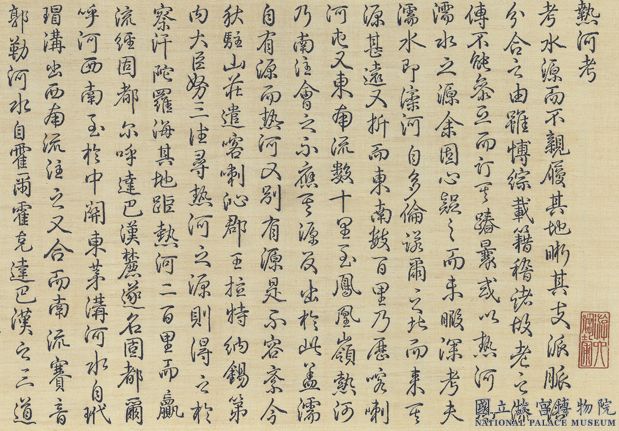 熱河考
考水源而不親履其地晰其支派脈
分合之由雖博綜載籍稽諸故老之流
傳不能參互而訂其踳曩或以熱河
濡水之源余固心疑之而未暇深考夫
濡水即灤河自多倫諾爾之北而來其
源甚遠又折而東南數百里乃歷喀喇
河屯又東南流數十里至鳳凰嶺熱河
乃南注會之不應其源反出於此蓋濡
自有源而熱河又別有源是不容紊今
秋駐山莊遣喀喇沁郡王拉特納錫第
內大臣努三往尋熱河之源則得之於
察汗陀羅海其地距熱河二百里而贏
流經固都爾呼達巴漢麓遂名固都爾
呼河西南至於中關東茅溝河水自玳
瑁溝出西南流注之又合而南流賽音
郭勒河水自霍爾霍克達巴漢之三道
國立故宮博物院
NATIONAL PALACE MUSEUM